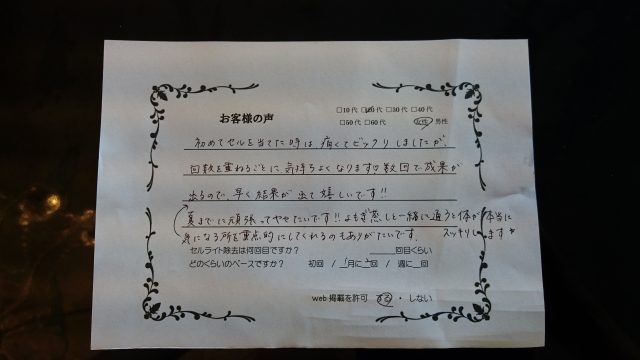 お客様の声
□10代 □20代 □30代 □40代
□50代 □60代 女性 男性
初めてセルを当てた時は、痛くてビックリしましたが、
回数を重ねるごとに、気持ちよくなります♡数回で成果が
出るので、早く結果が出て嬉しいです!!
夏までに頑張ってヤセたいです!!よもぎ蒸しと一緒に通うと体が本当に
スッキリします
気になる所を重点的にしてくれるのもありがたいです。
セルライト除去は何回目ですか? 回目くらい
どのくらいのペースですか? 初回 / 1月に 回 / 週に 回
web掲載を許可 する ・ しない